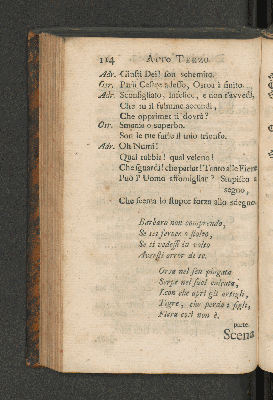 114 ATTO TERZO
Adr. Giusti Dei! son schernito.
Osr. Parli Cesare adesso, Osroa è finito.
Adr. Sconsigliato, infelice, e non t'avvedi,
Che tu il fulmine accendi,
Che opprimer ti dovrà?
Osr. Smania o superbo.
Son le tue furie il mio trionfo.
Adr. Oh Numi!
Qual rabbia! qual veleno!
Che sguardi! che parlar! Tanto alle Fiere
Può l' Uomo assomigliar? Stupisco a
segno,
Che scema lo stupor forza allo sdegno.
Barbaro non comprendo,
Se sei feroce o stolto,
Se ti vedessi in volto
Avresti orror di te.
Orsa nel sen piagata
Serpe nel suol calcata,
Leon che aprì gli artigli,
Tigre, che perda i figli,
Fiera così non è.
parte.
Scena